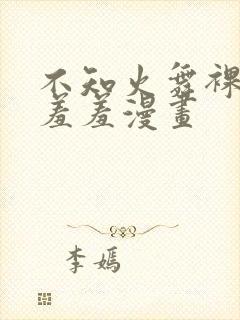 不知火舞裸
羞羞漫畫
李嫣